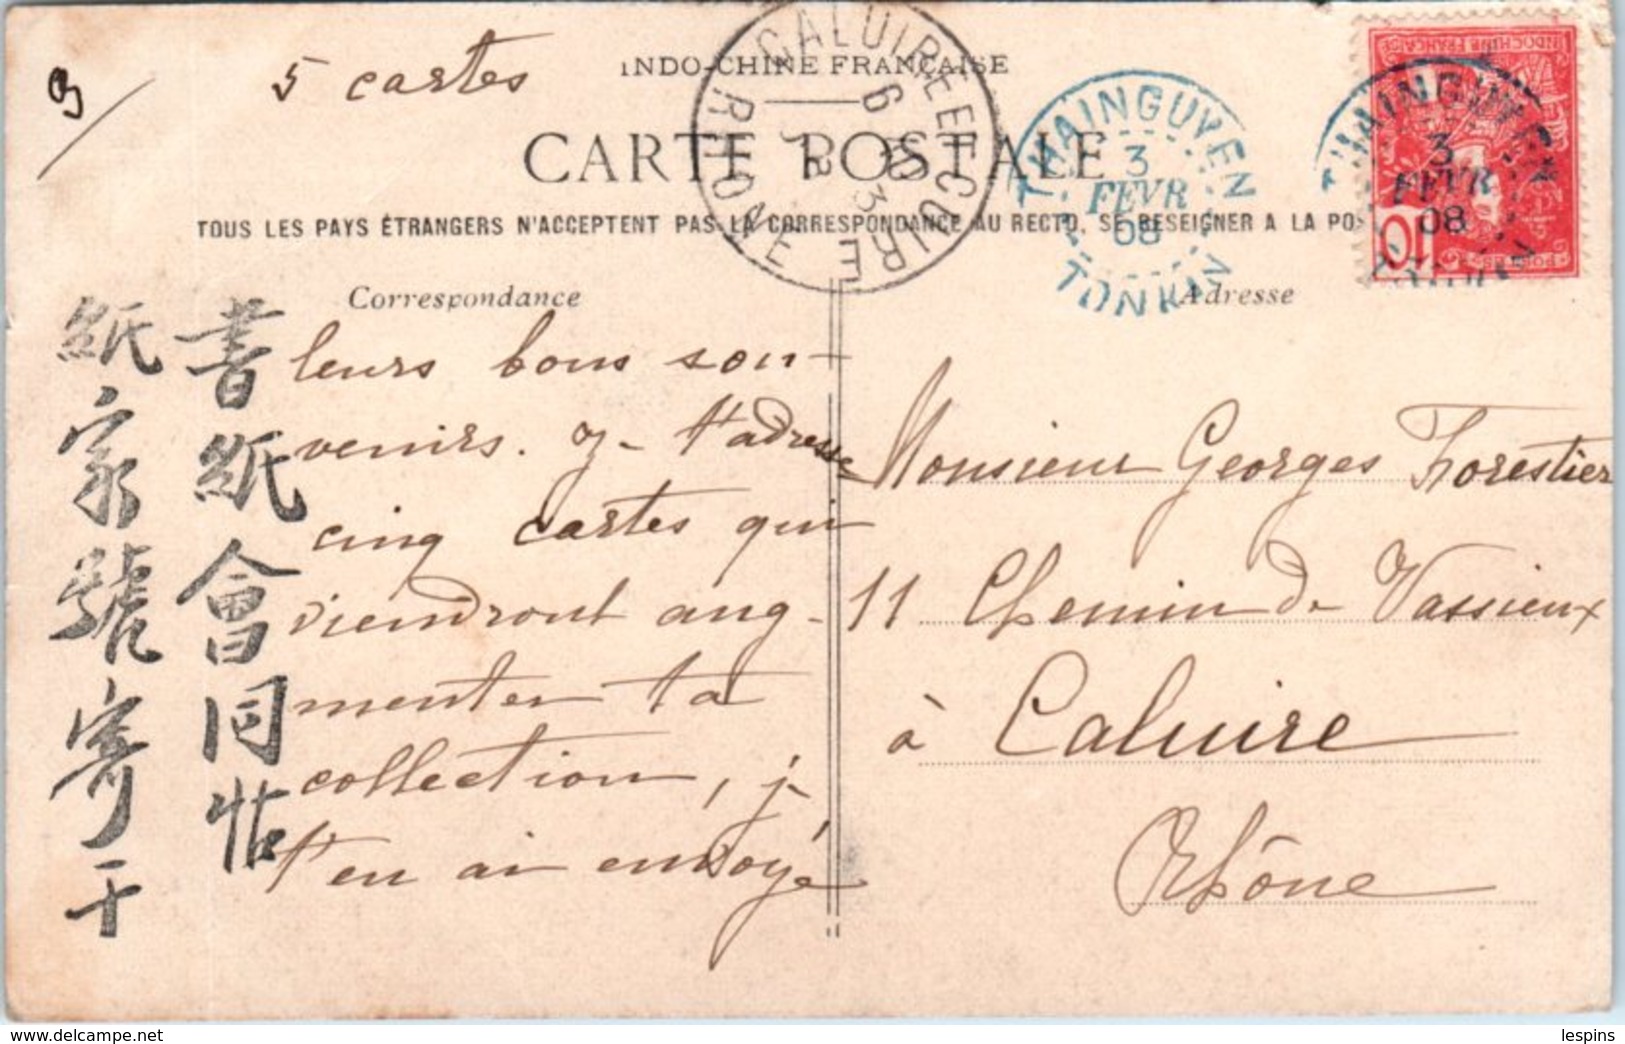 5 cartes
INDO-CHINE FRANÇAISE
CARTE POSTALE
TOUS LES PAYS ÉTRANGERS N'ACCEPTENT PAS LA CORRESPONDANCE AU RECTO, SE RESEIGNER A LA POS
CALUIRE ET CUIRE
RHONE
THAINGUYEN
3
FEVR
08
TONKIN
THAINGUYEN
3
FEVR
08
TONKIN
INDOCHINE FRANÇAISE
10
POSTES
Correspondance
Adresse
leurs bons sou-
venirs. J- t'adresse
cinq cartes qui
viendront aug-
menter ta
collection, j-
t'en ai envoyé
Monsieur Georges Forestier
11 Chemin de Vassieux
à Caluire
Rhône
書紙會同帖
紙家號寄于
lespins